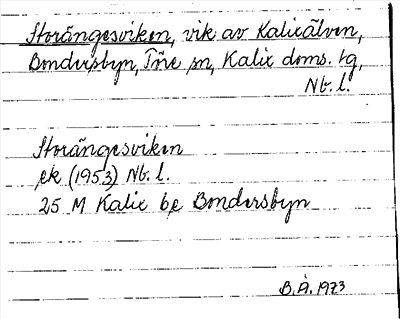 Storängesviken, vik av Kalixälven,
Bondersbyn, Töre sn, Kalix doms. tg,
Nb. l.
Storängesviken
ek (1953) Nb. l.
25 M Kalix be Bondersbyn
B.Å. 1973